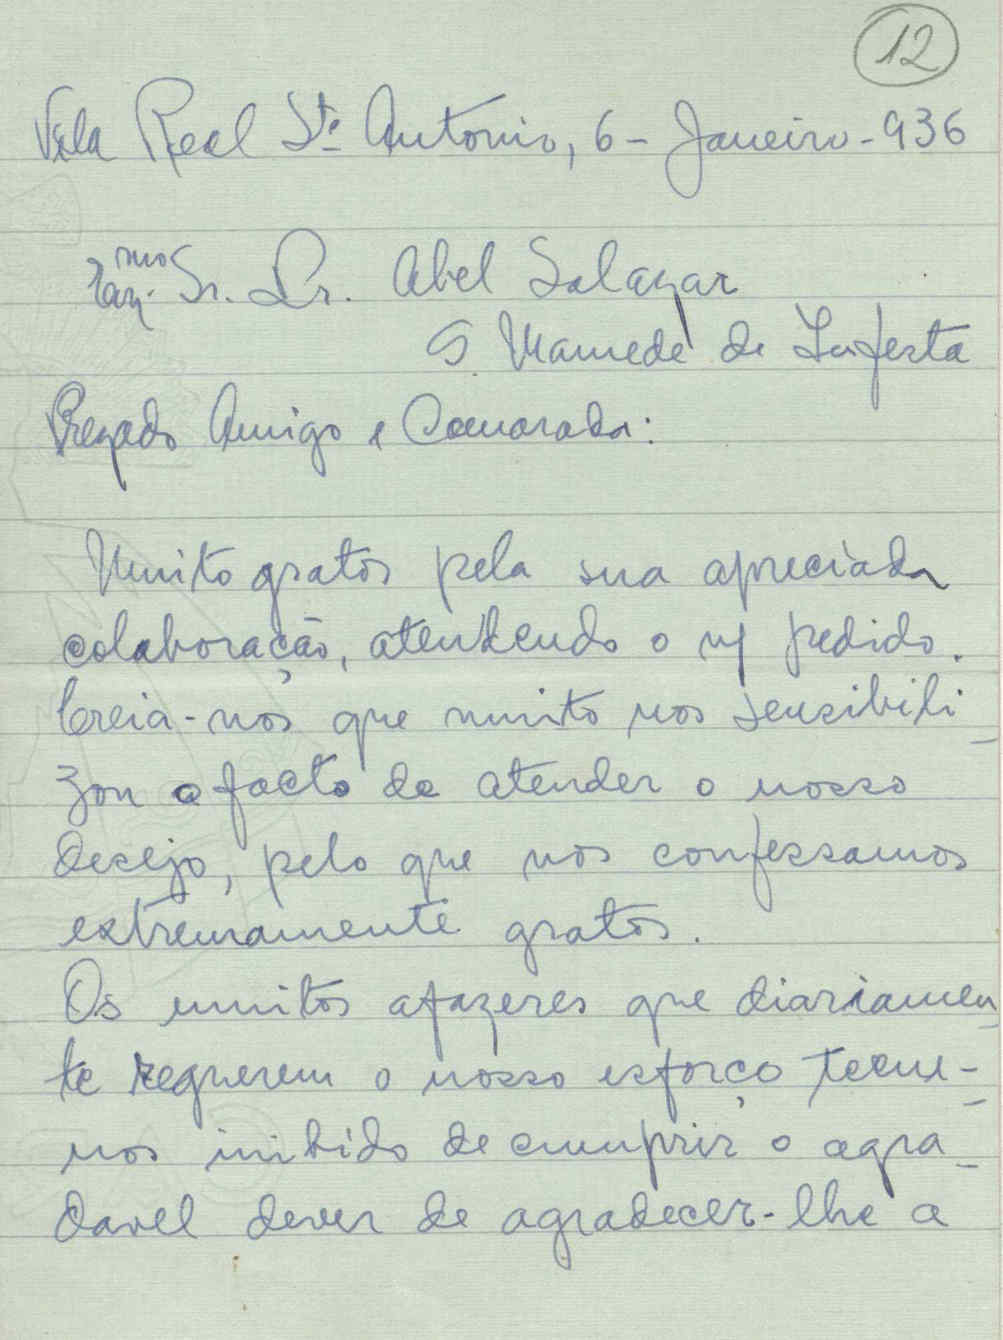 12
Vila Real Sto Antonio, 6 - Janeiro - 936
Exmo Sr. Dr. Abel Salazar
S Mamede de Infesta
Prezado Amigo e Camarada:
Muito gratos pela sua apreciada
colaboração, atendendo o n/ pedido.
Creia-nos que muito nos sensibili-
zou o facto de atender o nosso
desejo, pelo que nos confessamos
extremamente gratos.
Os muitos afazeres que diariamen-
te requerem o nosso esforço teem-
nos inibido de cumprir o agra-
davel dever de agradecer-lhe a